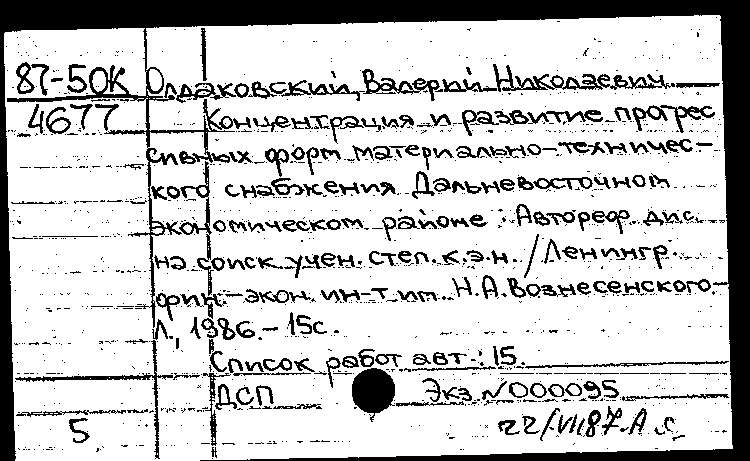 87-50К Олдаковский, Валерий Николаевич
4677 Концентрация и развитие прогрес
сивных форм материально-техничес-
кого снабжения Дальневосточном
экономическом районе : Автореф. дис.
на соиск учен. степ. к.э.н. / Ленингр.
фин.-экон. ин-т им. Н.А. Вознесенского.-
Л., 1986.- 15с.
Список работ авт.: 15.
ДСП Экз. N000095
5 22/VII87. А.с.